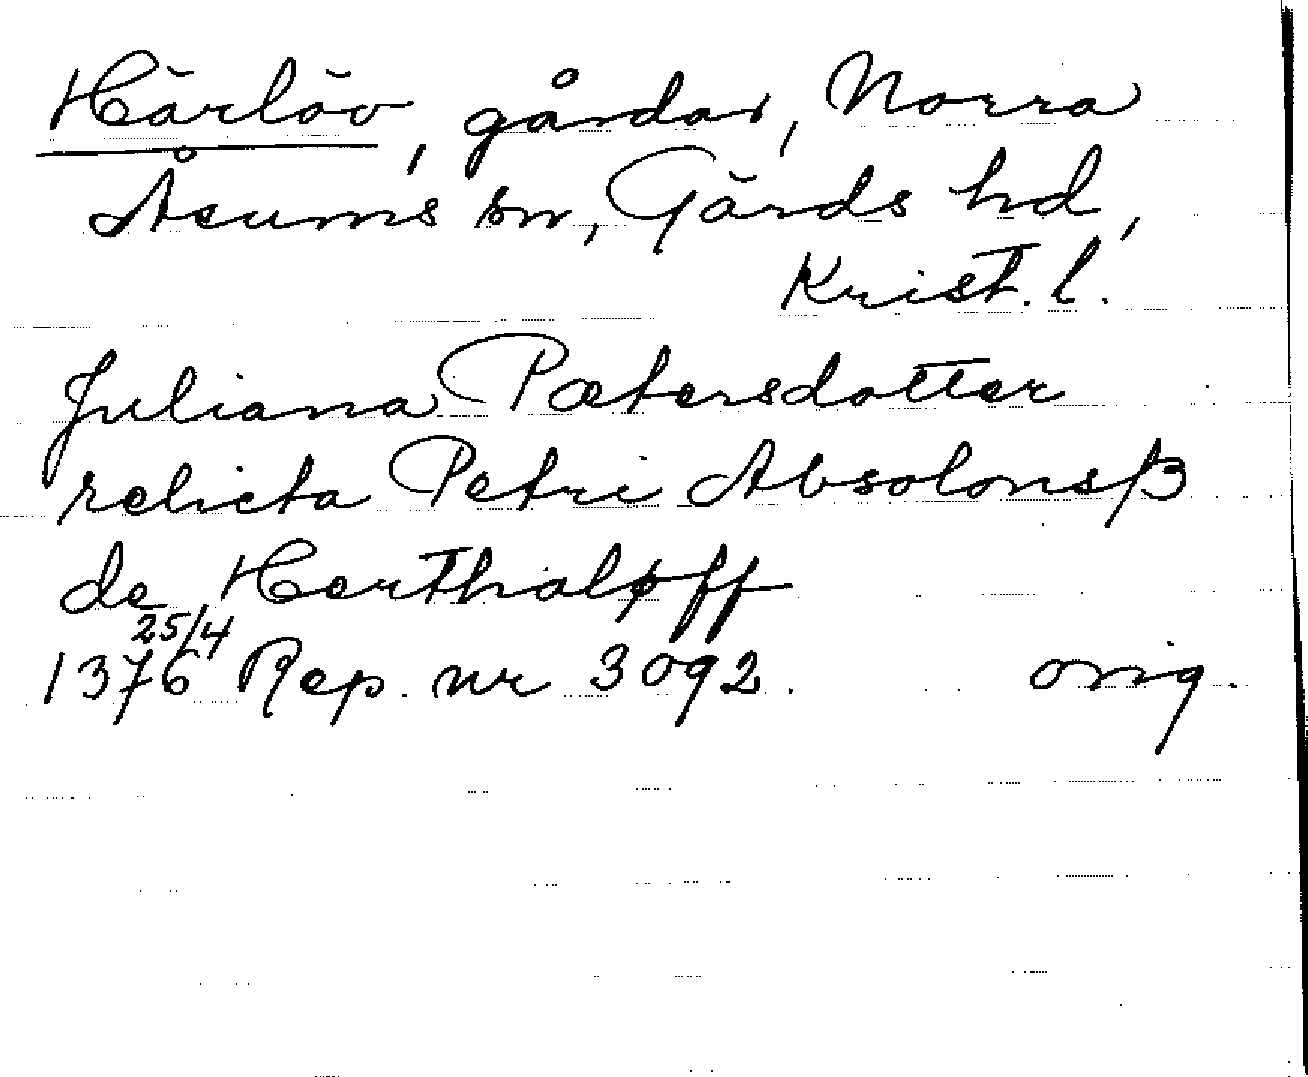 Härlöv, gårdar, Norra
Åsums sn, Gärds hd,
Krist. l.
Juliana Pætersdotter
relicta Petri Absolonsß
de Herthaløff
25/4
1376 Rep. nr 3092. orig.